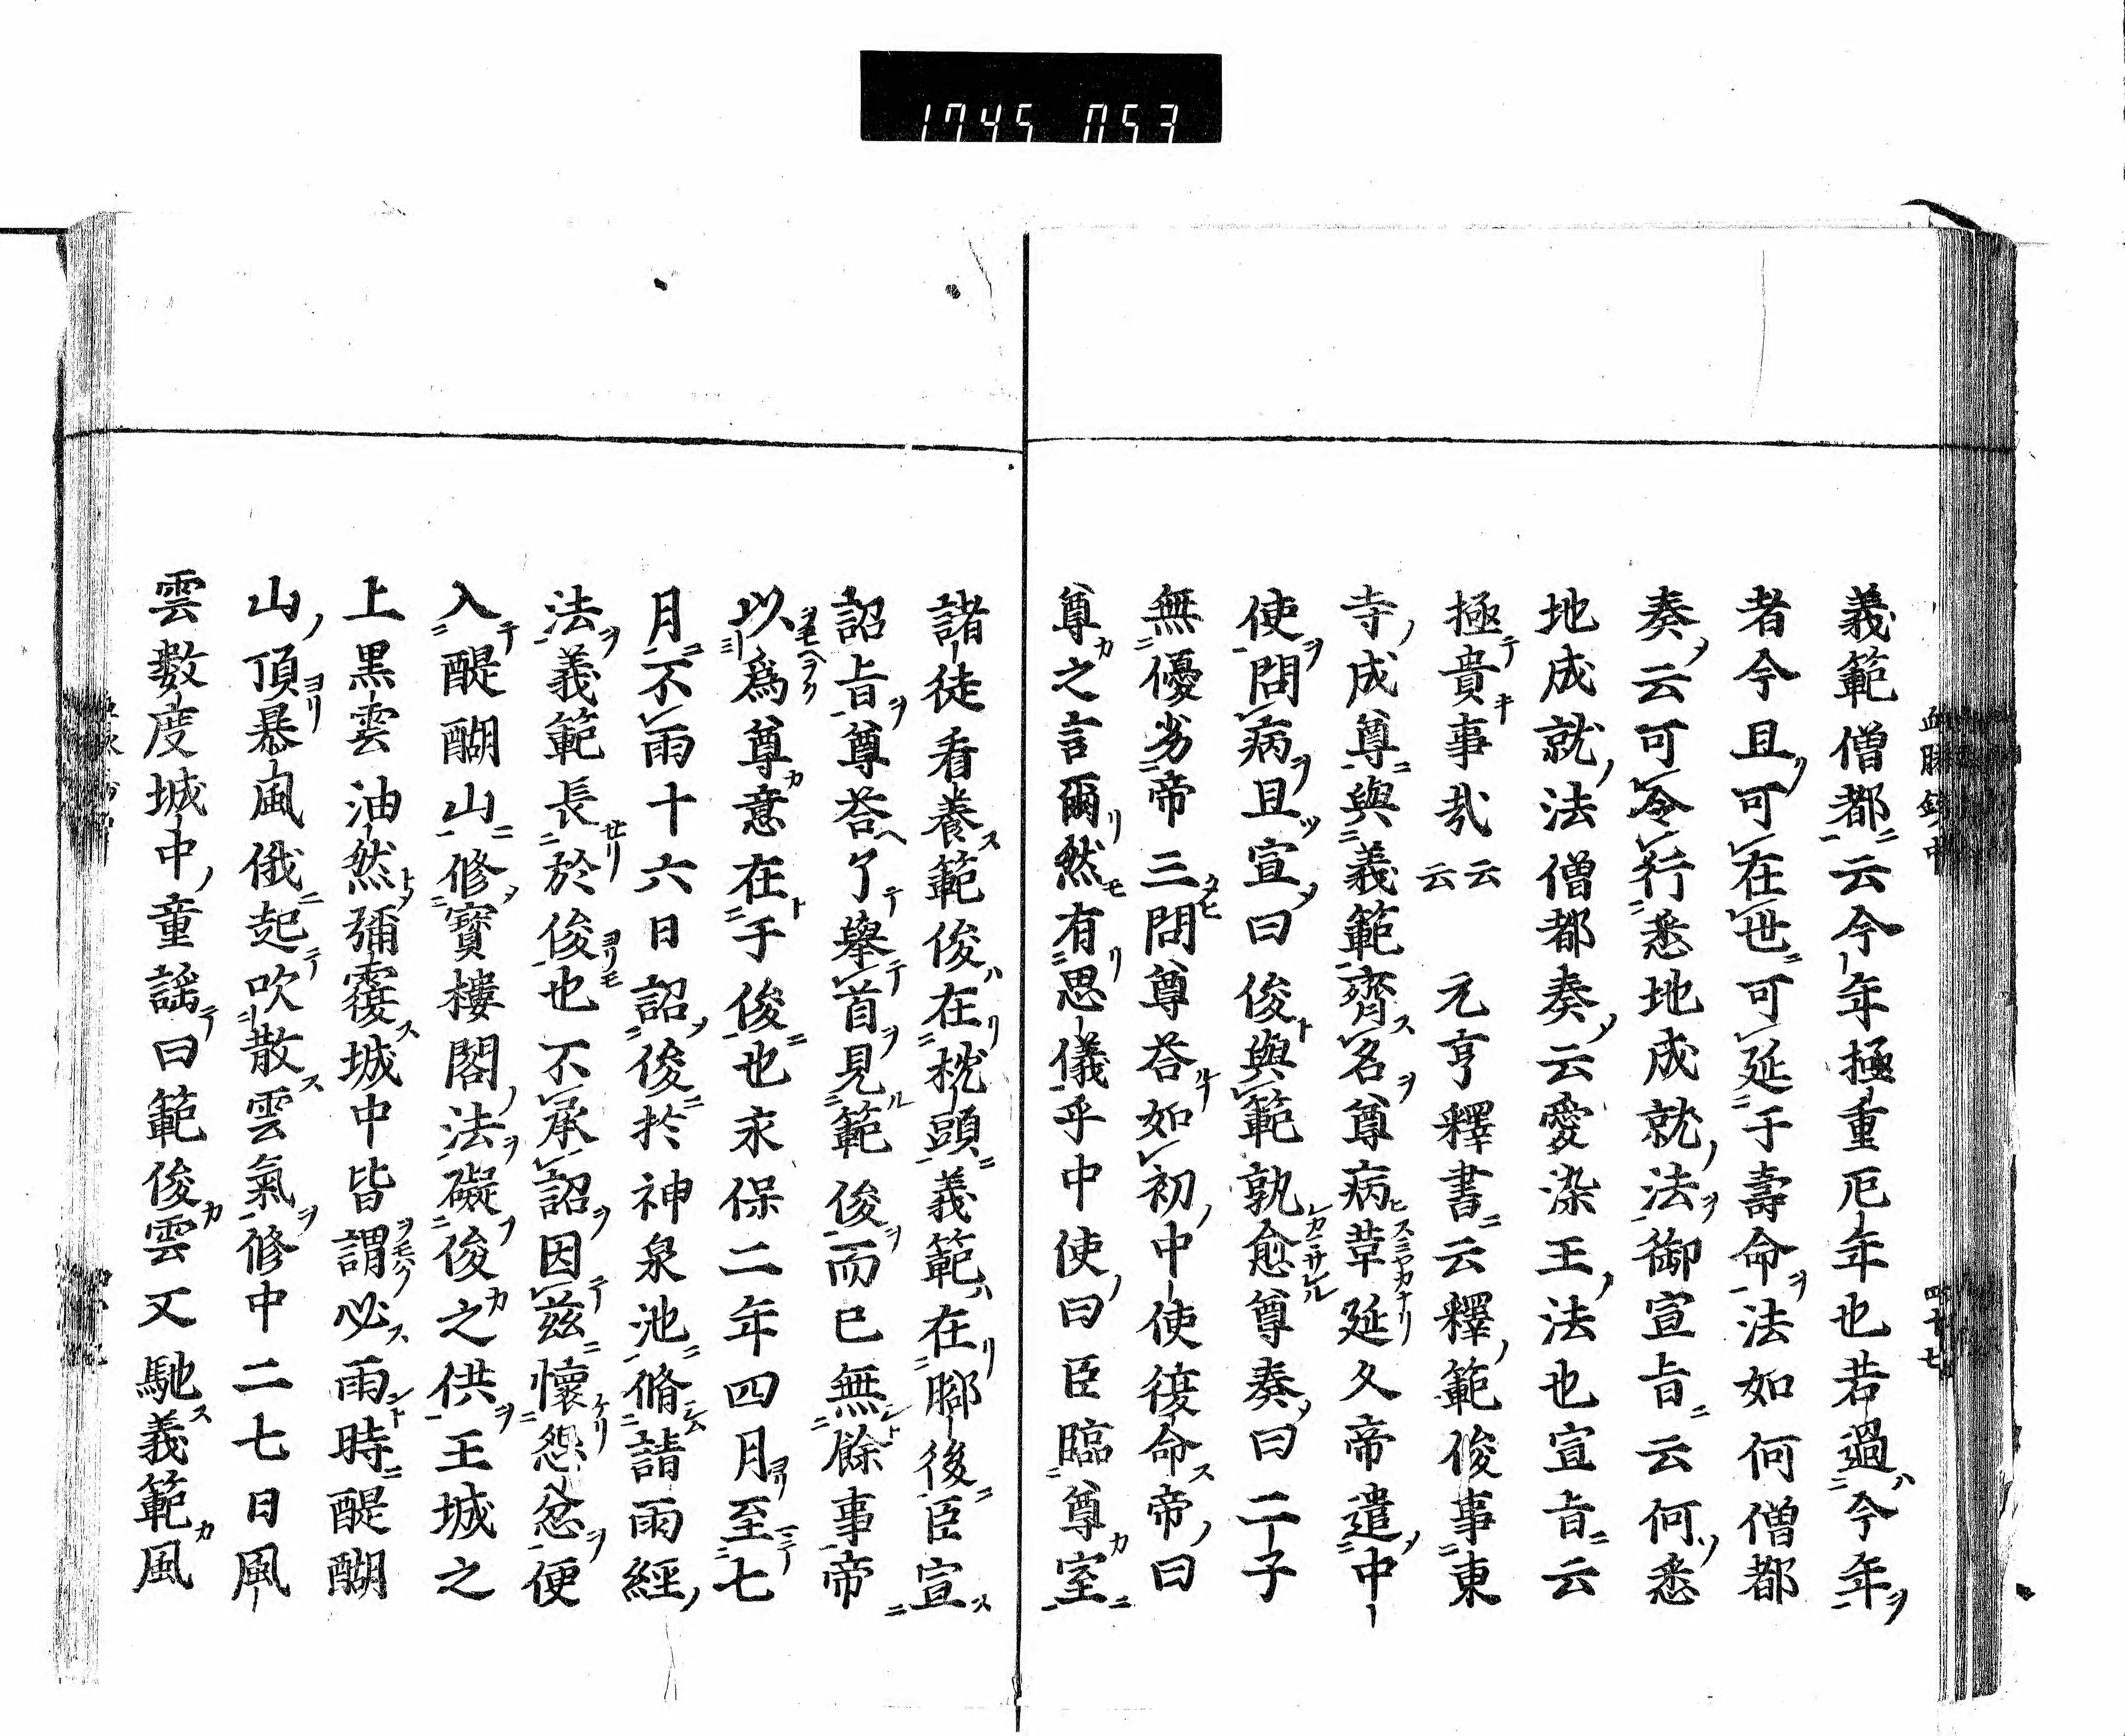 1745 053
義範僧都云今年極重厄年也若過今年
者今且可在世可延于壽命法如何僧都
奏云可令行悉地成就法御宣旨云何悉
地成就法僧都奏云愛染王法也宣旨云
極貴事哉云云 元亨釋書云釋範俊事東
寺成尊與義範齊名尊病草延久帝遣中
使問病且宣曰俊與範孰愈尊奏曰二子
無優劣帝三問尊荅如初中使復命帝曰
尊之言爾然有思儀乎中使曰臣臨尊室
諸徒看養範俊在枕頭義範在脚後臣宣
詔旨尊荅了擧首見範俊而已無餘事帝
以爲尊意在于俊也永保二年四月至七
月不雨十六日詔俊於神泉池脩請雨經
法義範長於俊也不承詔因茲懷怨忿便
入醍醐山修寶樓閣法礙俊之供王城之
上黑雲油然彌覆城中皆謂必雨時醍醐
山頂暴風俄起吹散雲氣修中二七日風
雲數度城中童謡曰範俊雲又馳義範風